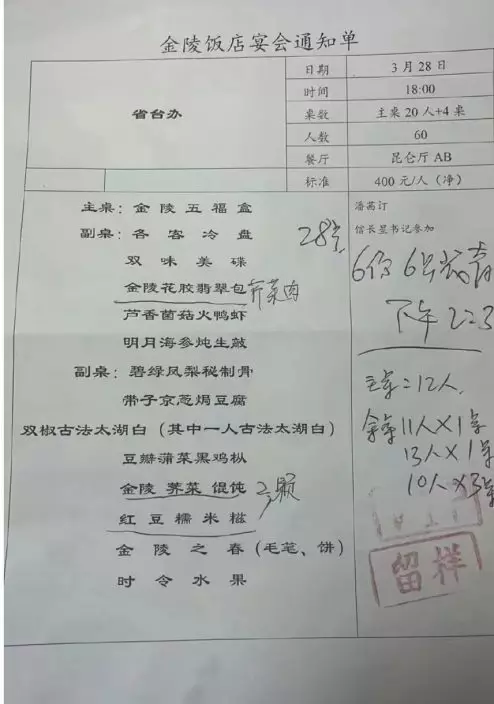 金陵饭店宴会通知单
省台办
日期 3月28日
时间 18:00
桌数 主桌20人+4桌
人数 60
餐厅 昆仑厅AB
标准 400元/人（净）
主桌：金陵五福盒
副桌：各客冷盘
双味美碟
金陵花胶翡翠包 荠菜肉
芦香菌菇火鸭虾
明月海参炖生敲
副桌：碧绿凤梨秘制骨
带子京葱焗豆腐
双椒古法太湖白（其中一人古法太湖白）
豆瓣蒲菜黑鸡枞
金陵荠菜馄饨
红豆糯米糍
金陵之春（毛笔、饼）
时令水果
信长星书记参加
下午
主桌=12人
11人×1桌
13人×1桌
10人×3桌
留样